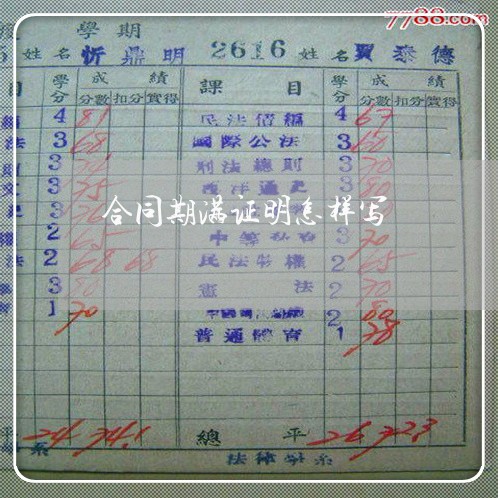 7788.com
學期
姓名 忻鼎明 2616 姓名 賈泰德
目 學分 成績 課目 學分 成績
分數 扣分 實得 分數 扣分 實得
4 81 民法債編 4 67
法 3 68 國際公法 3 60
3 刑法總則 3 70
3 75 西洋通史 3 80
合同期满证明怎样写
2 65 3 70
法 2 68 68 民法物權 2 65
3 80 憲法 2 70
育 1 70 2 80
普通體育 1 78
平 24 74.1 總平 26 72.3
系 法律學系